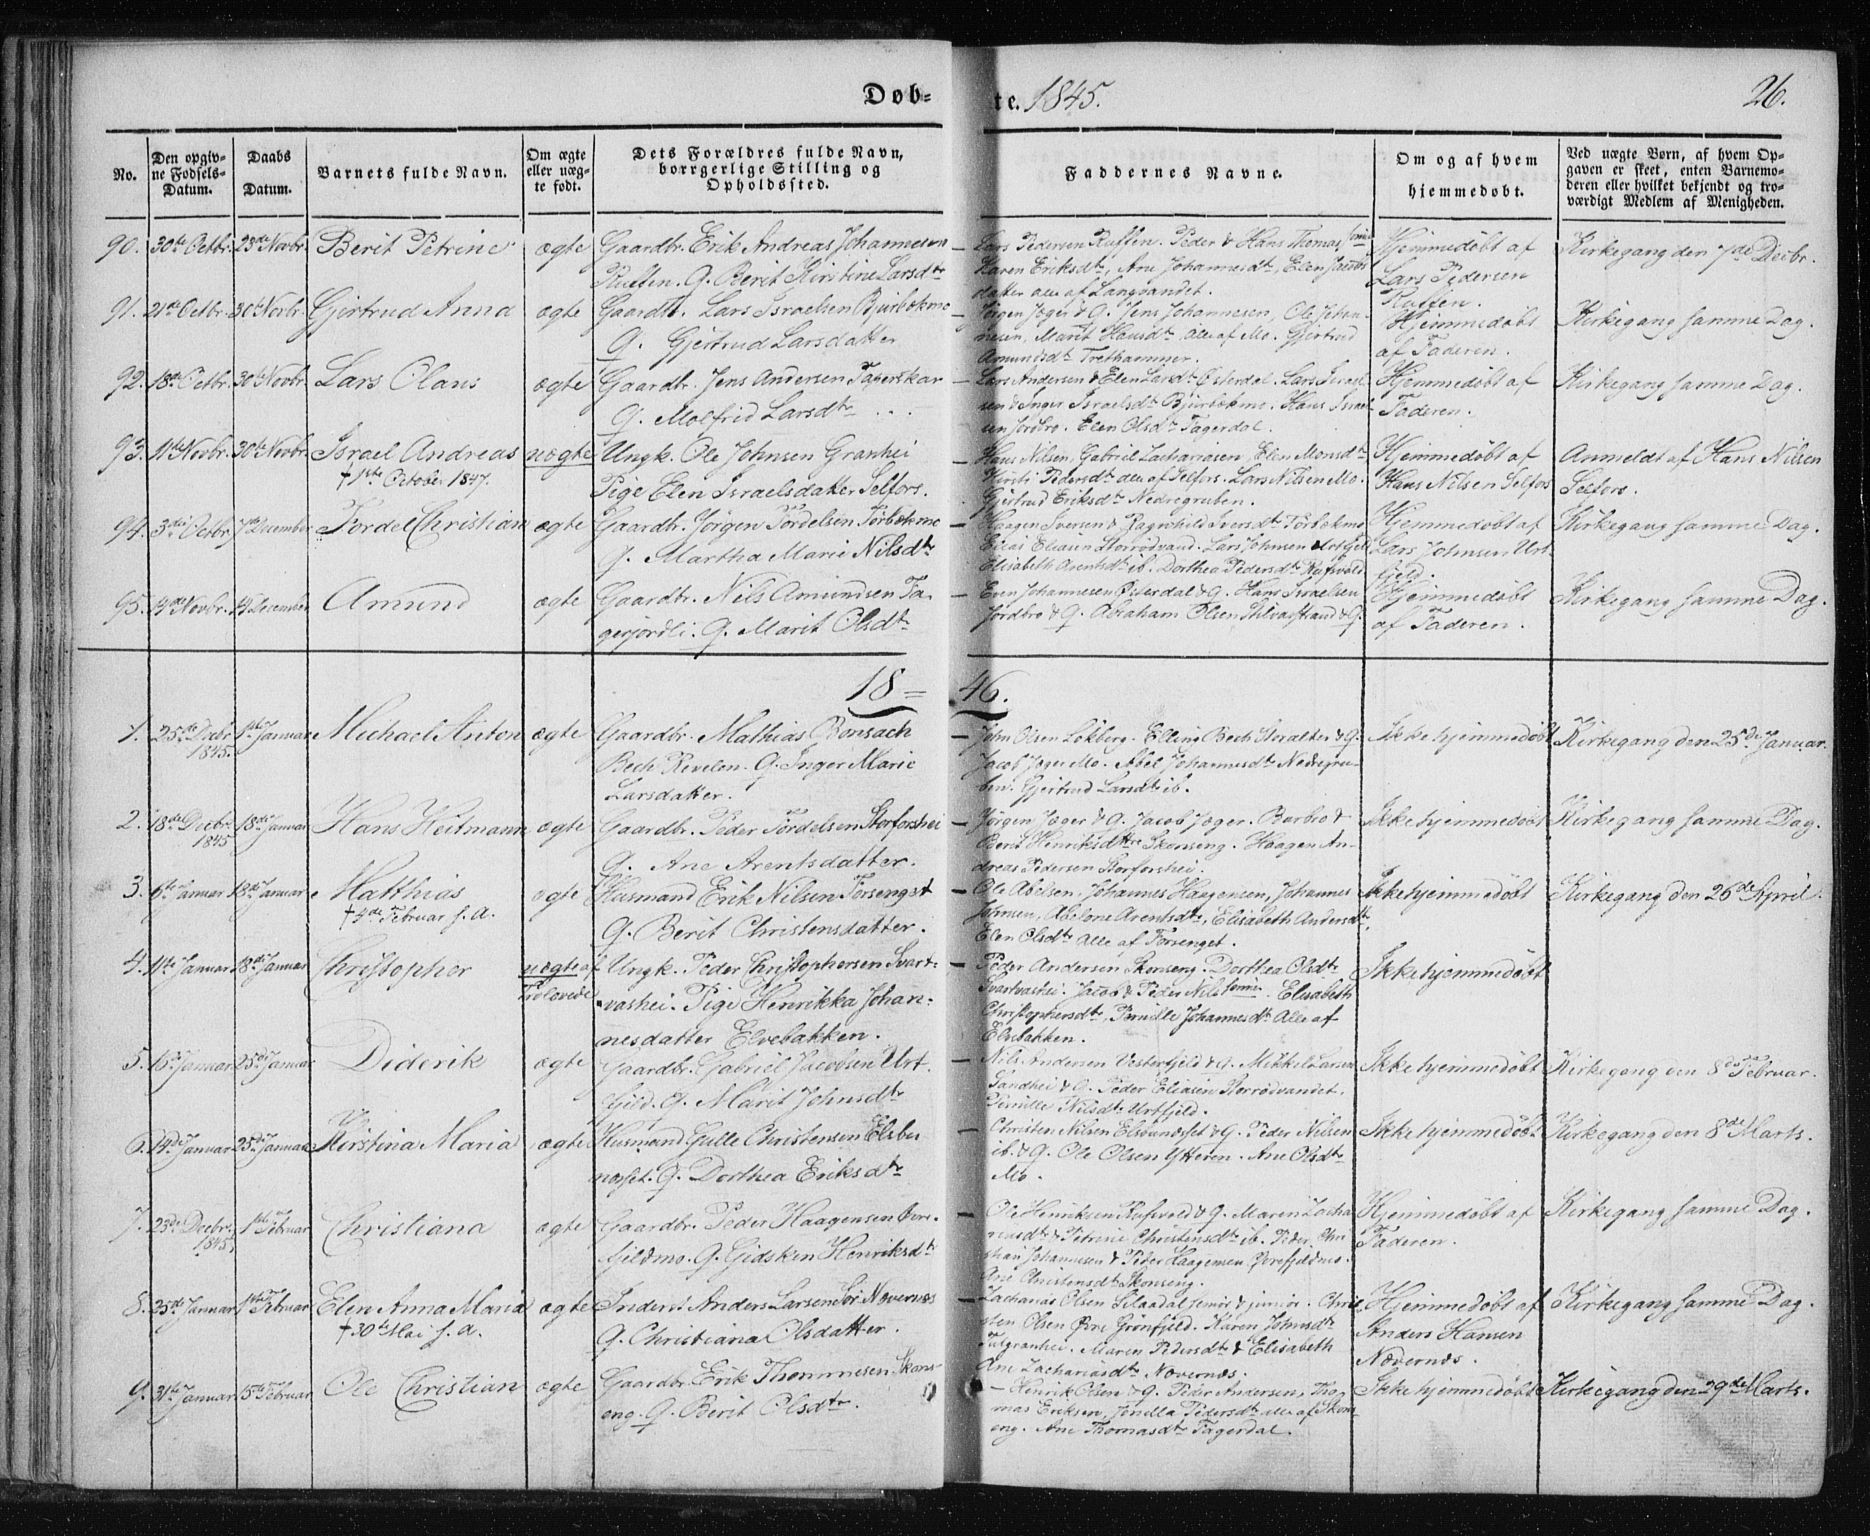 Døb-
te. 1845.
26.
No.
Den opgiv-
ne Fødsels-
Datum.
Daabs
Datum.
Barnets fulde Navn.
Om ægte
eller uæg-
te født.
Dets Forældres fulde Navn,
borrgerlige Stilling og
Opholdssted.
Faddernes Navne.
Om og af hvem
hjemmedøbt.
Ved uægte Børn, af hvem Op-
gaven er skeet, enten Barnemo-
deren eller hvilket bekjendt og tro-
værdigt Medlem af Menigheden.
90. 30te Octbr. 23de Novbr. Berit Petrine ægte Gaardbr. Erik Andreas Johannesen
Ruffen. Q. Berit Kirstine Larsdtr
— Lars Pedersen Ruffen. Peder & Hans Thomassønner
Karen Eriksdtr, Ane Johannesdtr, Elen Jacobs
datter alle af Langvandet.
Hjemmedøbt af
Lars Pedersen
Ruffen.
Kirkegang den 7de Decbr.
91. 21de Octbr. 30te Novbr. Gjertrud Anna ægte Gaardbr. Lars Israelsen Bjurbækmo
Q. Gjertrud Larsdatter
— Jørgen Jæger & Q. Jens Johannesen, Ole Johan-
nesen, Maret Hansdtr. alle af Mo. Gjertrud
Amundsdtr Trethammer.
Hjemmedøbt
af Faderen.
Kirkegang samme Dag.
92. 18de Octbr. 30te Novbr. Lars Olaus ægte Gaardbr. Jens Andersen Fagerskar
Q. Molfrid Larsdtr
— Lars Andersen & Elen Larsdtr Østerdal. Lars Israel-
sen & Inger Israelsdtr Bjurbækmo. Hans Israel-
sen Jordbro. Elen Olsdtr Fagerdal.
Hjemmedøbt af
Faderen.
Kirkegang samme Dag.
93. 11te Novbr. 30te Novbr. Israel Andreas uægte Ungk. Ole Johnsen Granhei
† 1ste October 1847.
Pige Elen Israelsdatter Selfors.
— Hans Nilsen, Gabriel Zachariasen, Elen Monsdtr
Kirsti Pedersdtr alle af Selfors. Lars Nilsen Mo.
Gjertrud Eriksdtr Nedregruben.
Hjemmedøbt af
Hans Nilsen Selfors
Anmeldt af Hans Nilsen
Selfors.
94. 3die Octbr. 7de December Tordel Christian ægte Gaardbr. Jörgen Tordelsen Tørbækmo
Q. Martha Marie Nilsdtr
— Haagen Iversen & Ragnhild Iversdtr Tørbækmo
Elias Eliasen Storrødvand. Lars Johnsen Urtfjeld
Elisabeth Arentsdtr ib. Dorthea Pedersdtr Rufsvold
Hjemmedøbt af
Lars Johnsen Urt-
fjeld.
Kirkegang samme Dag.
95. 14de Novbr. 14 December Amund ægte Gaardbr. Nils Amundsen Fa-
gerjordli. Q. Marit Olsdtr
— Even Johannesen Østerdal & Q. Hans Israelsen
Jordbro & Q. Abraham Olsen Ytlvasstrand & Q.
Hjemmedøbt
af Faderen.
Kirkegang samme Dag.
18 = 46.
1. 25de Decbr. 1845. 1ste Januar Michael Anton ægte Gaardbr. Mathias Bonsach
Bech Revelen. Q. Inger Marie
Larsdatter.
— John Olsen Løkberg. Elling Bech Storalter & Q.
Jacob Jæger Mo. Abel Johannesdtr Nedregru-
ben. Gjertrud Larsdtr ib.
Ikke hjemmedøbt
Kirkegang den 25de Januar.
2. 18de Decbr. 1845 18de Januar Hans Heitmann ægte Gaardbr. Peder Tordelsen Storforshei
Q. Ane Arentsdatter.
— Jørgen Jæger & Q. Jacob Jæger. Barbro &
Berit Henriksdøtre Skonseng. Haagen An-
dreas Pedersen Storforshei.
Ikke hjemmedøbt
Kirkegang samme Dag.
3. 6te Januar 18de Januar Matthias ægte Husmand Erik Nilsen Forsenget
† 4de Februar s. a.
Q. Berit Christensdatter.
— Ole Abelsen. Johannes Haagensen, Johannes
Johnsen, Abelone Arentsdtr, Elisabeth Andersdtr,
Elen Olsdtr alle af Forsenget.
Ikke hjemmedøbt
Kirkegang den 26de April.
4. 11te Januar 18de Januar Christopher uægte af
Trolovede
Ungk. Peder Christophersen Svart-
vashei. Pige Henrikka Johan-
nesdatter Elvebakken.
— Peder Andersen Skonseng. Dorthea Olsdtr
Svartvashei. Jacob & Peder Nilssønner. Elisabeth
Christophersdtr, Pernille Johannesdtr Alle af
Elvebakken.
Ikke hjemmedøbt
5. 16de Januar 25de Januar Diderik ægte Gaardbr. Gabriel Jacobsen Urt-
fjeld. Q. Marit Johnsdtr
— Nils Andersen Vesterfjeld & Q. Mikkel Larsen
Sandhei & Q. Peder Eliasen Storrødvandet.
Pernille Nilsdtr Urtfjeld.
Ikke hjemmedøbt
Kirkegang den 8de Februar.
6. 14de Januar 25de Januar Kirstina Maria ægte Husmand Gulle Christensen Elsbu
næsset. Q. Dorthea Eriksdtr
— Christen Nilsen Elsbunæsset & Q. Peder Nilsen
ib. & Q. Ole Olsen Ytteren. Ane Olsdtr
Mo.
Ikke hjemmedøbt
Kirkegang den 8de Marts.
7. 23de Decbr. 1845. 1ste Februar Christiana ægte Gaardbr. Peder Haagensen Øvre-
fjeldmo. Q. Gidsken Henriksdtr
— Ole Henriksen Rufsvold & Q. Maren Zacha-
riasdtr & Petrine Christensdtr ib. Peder, Chri-
stian Johannesen & Peder Haagensen Øvrefjeldmo.
Ane Christensdtr Skonseng.
Hjemmedøbt af
Faderen.
Kirkegang samme Dag.
8. 25de Januar 1ste Februar Elen Anna Maria ægte Inderst Anders Larsen Søi Nævernæs
† 30te Mai s. a.
Q. Christiana Olsdatter.
— Zacharias Olsen Silaadal senior & junior. Chri-
sten Olsen Øvre Grønfjeld. Karen Johnsdtr
Tulgranhei. Maren Pedersdtr & Elisabeth
Ane Zachariasdtr Nævernæs.
Hjemmedøbt af
Anders Hansen
Nævernæs.
Kirkegang samme Dag.
9. 31te Januar 15de Februar Ole Christian ægte Gaardbr. Erik Thommesen Skons-
eng. Q. Berit Olsdtr.
— Henrik Olsen & Q. Peder Andersen, Tho-
mas Eriksen, Pernilla Pedersdtr alle af Skons-
eng. Ane Thomasdtr Fagerdal.
Ikke hjemmedøbt
Kirkegang den 29de Marts.